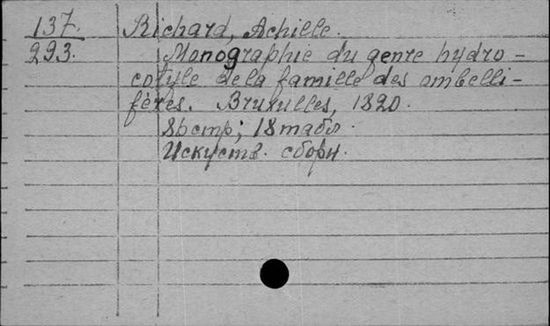 137. Richard, Achille.
293. Monographie du genre hydro-
cotyle de la famille des ombelli-
fères. Bruxelles, 1820.
86 стр; 18 табл.
Искуств. сборн.